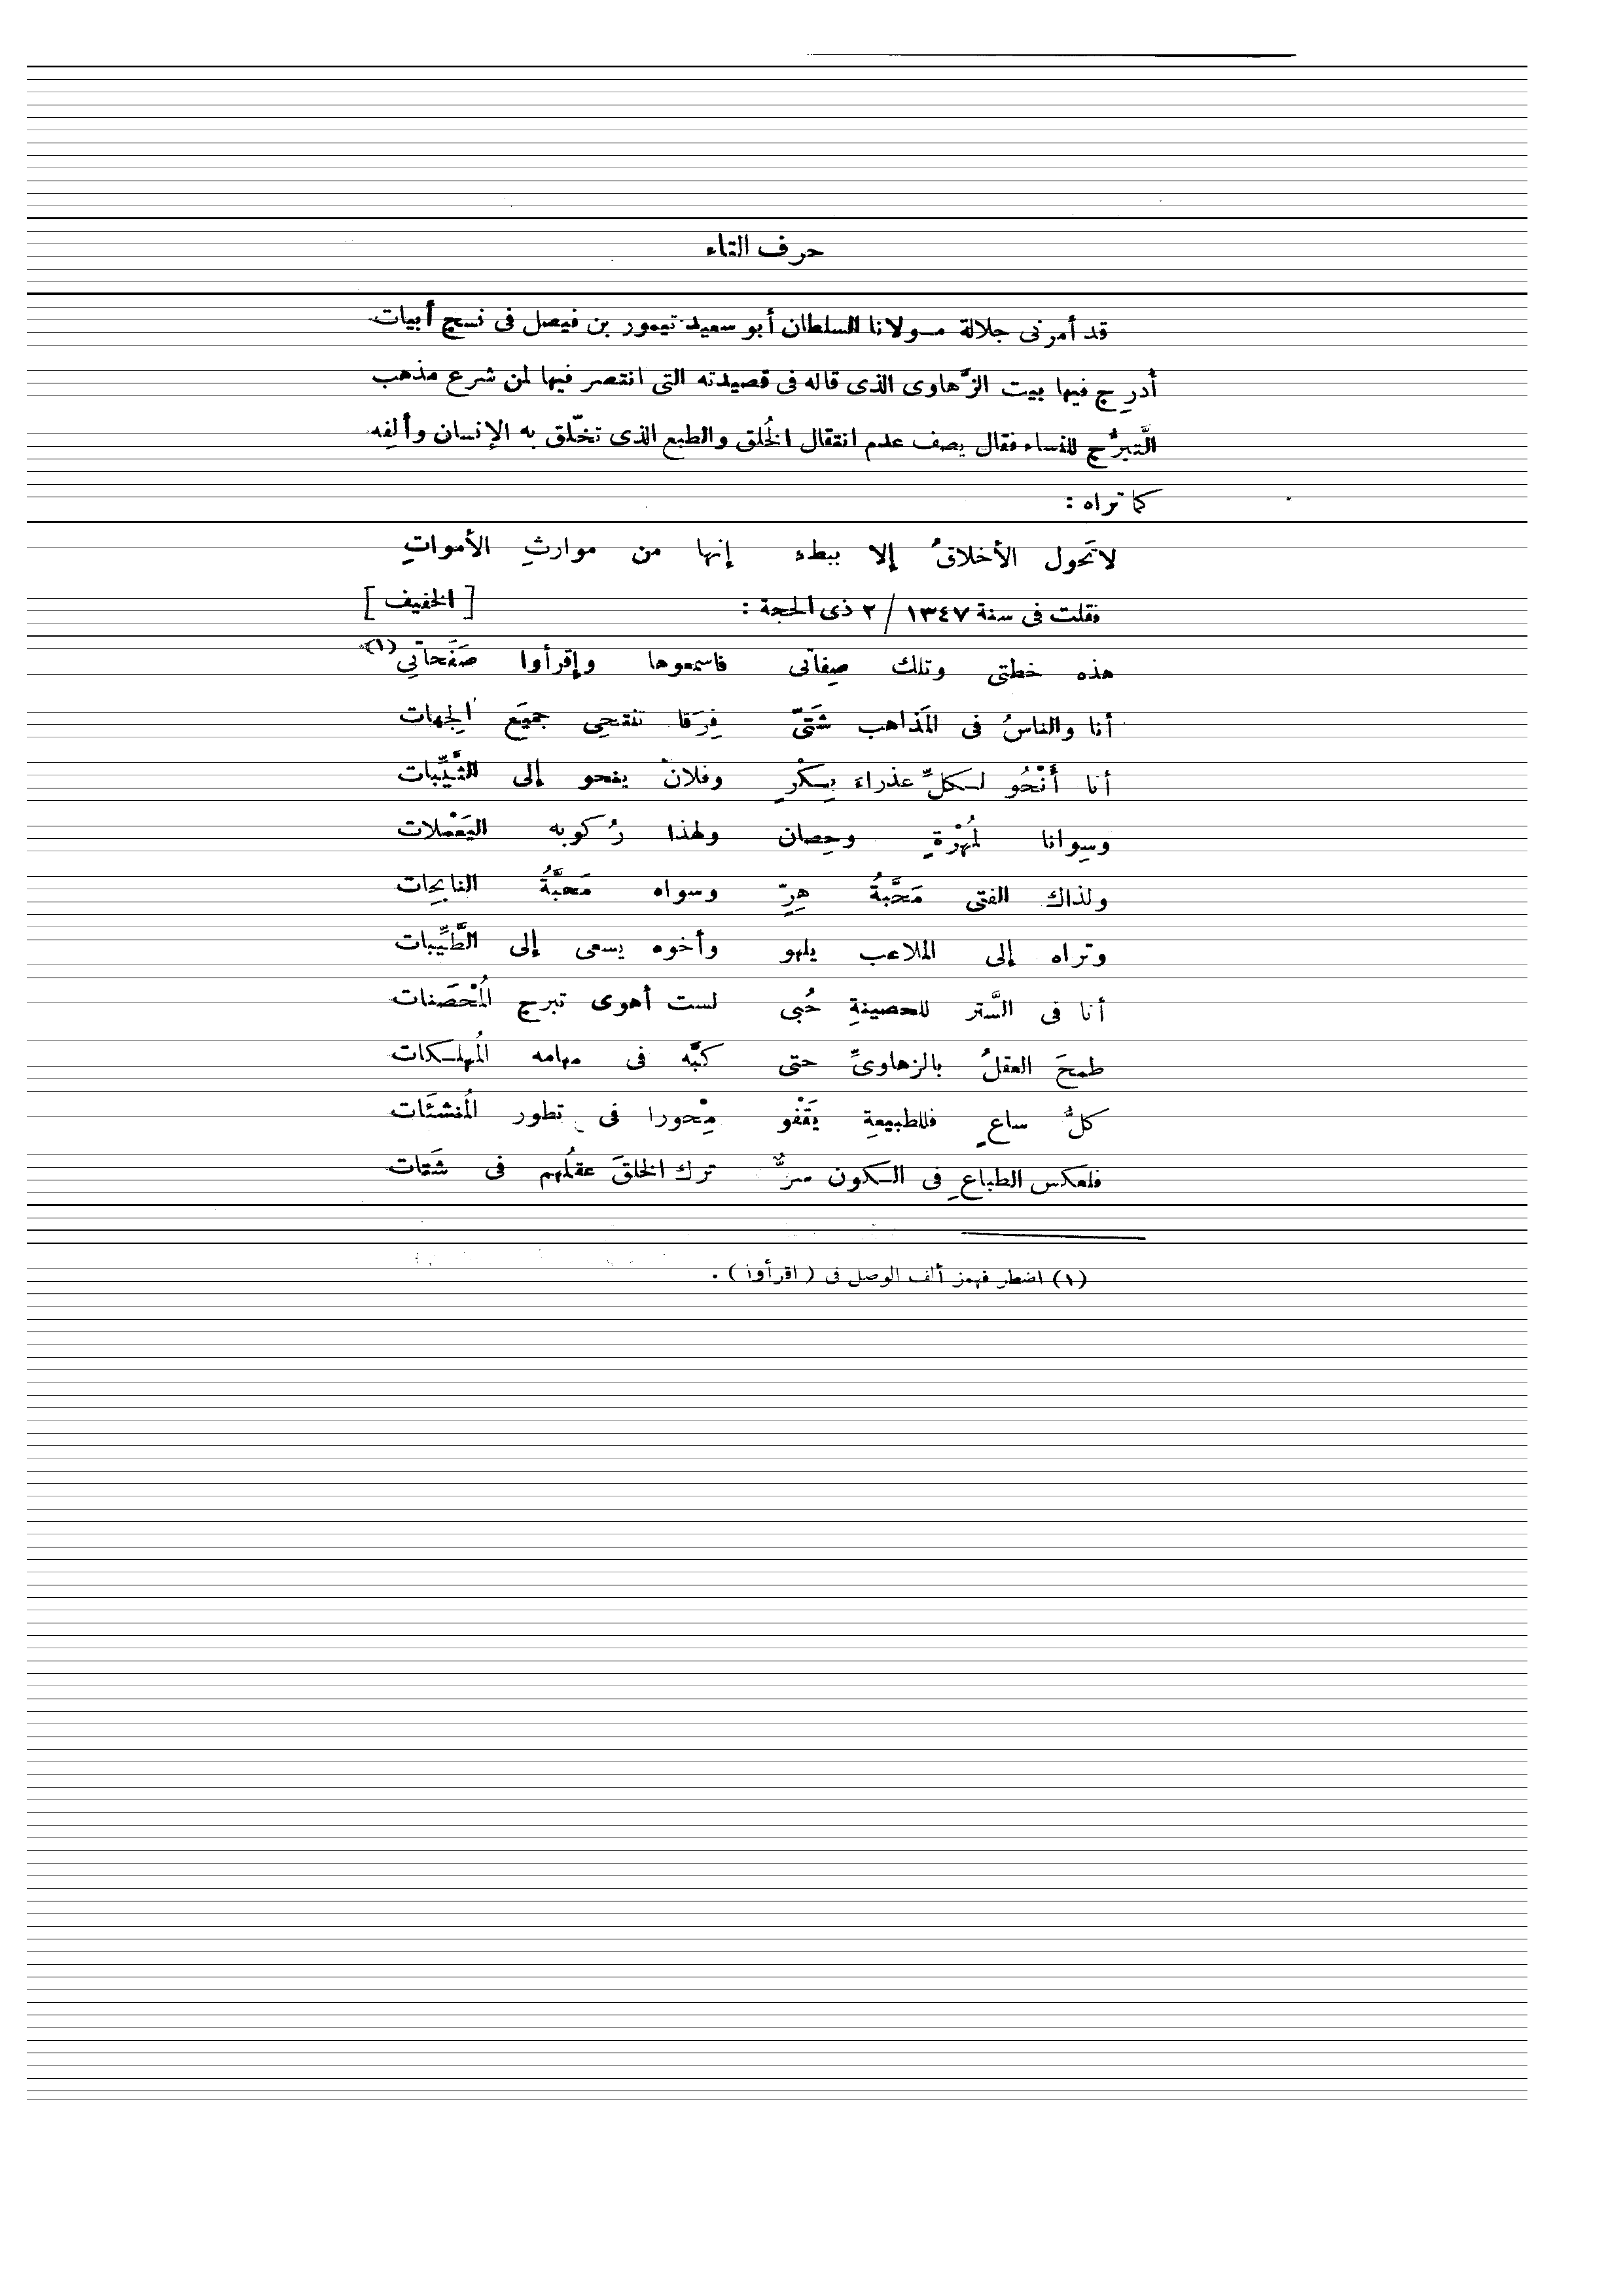 حرف التاء
قد أمرنى جلالة مولانا السلطان أبو سعيد تيمور بن فيصل فى نسج أبيات
أُدرِج فيها بيت الزَّهاوى الذى قاله فى قصيدته التى انتصر فيها لمن شرع مذهب
الَّتبرُّج للنساء فقال يصف عدم انتقال الخُلق والطبع الذى تخلّق به الإنسان وألِفه
كما تراه :
لا تَحول الأخلاقُ إلا ببطء إنها من موارثِ الأمواتِ
فقلت فى سنة ١٣٤٧ / ٢ ذى الحجة : [ الخفيف ]
هذه خطتى وتلك صِفاتى فاسمعوها وإقرأوا صَفَحاتِي (١)
أنا والناسُ فى المَذاهب شَتىّ فِرَقا تنتحِى جميَع الِجهات
أنا أَنْحُو لكلِّ عذراءَ بِكْرٍ وفلانٌ ينحو إلى الثَّيِّبات
وسِوانا لمُهْرْةٍ وحِصان ولهذا رُكوبه اليَعْملات
ولذاك الفتى مَحَبَّةُ هِرّ وسواه مَحبَّةُ النابِحات
وتراه إلى الملاعب يلهو وأخوه يسعى إلى الطَّيِّبات
أنا فى السَّتر للحصينةِ حُبى لست أهوى تبرج المُحْصَنات
طمحَ العقلُ بالزهاوىِّ حتى كبَّه فى مهامه المُهلكات
كلُّ ساعٍ فللطبيعةِ يَقْفو مِحْورا فى تطور المُنشئَات
فلعكس الطباعِ فى الكون سرٌّ ترك الخلقَ عقلُهم فى شَتات
(١) اضطر فهمز ألف الوصل فى ( اقرأوا ) .